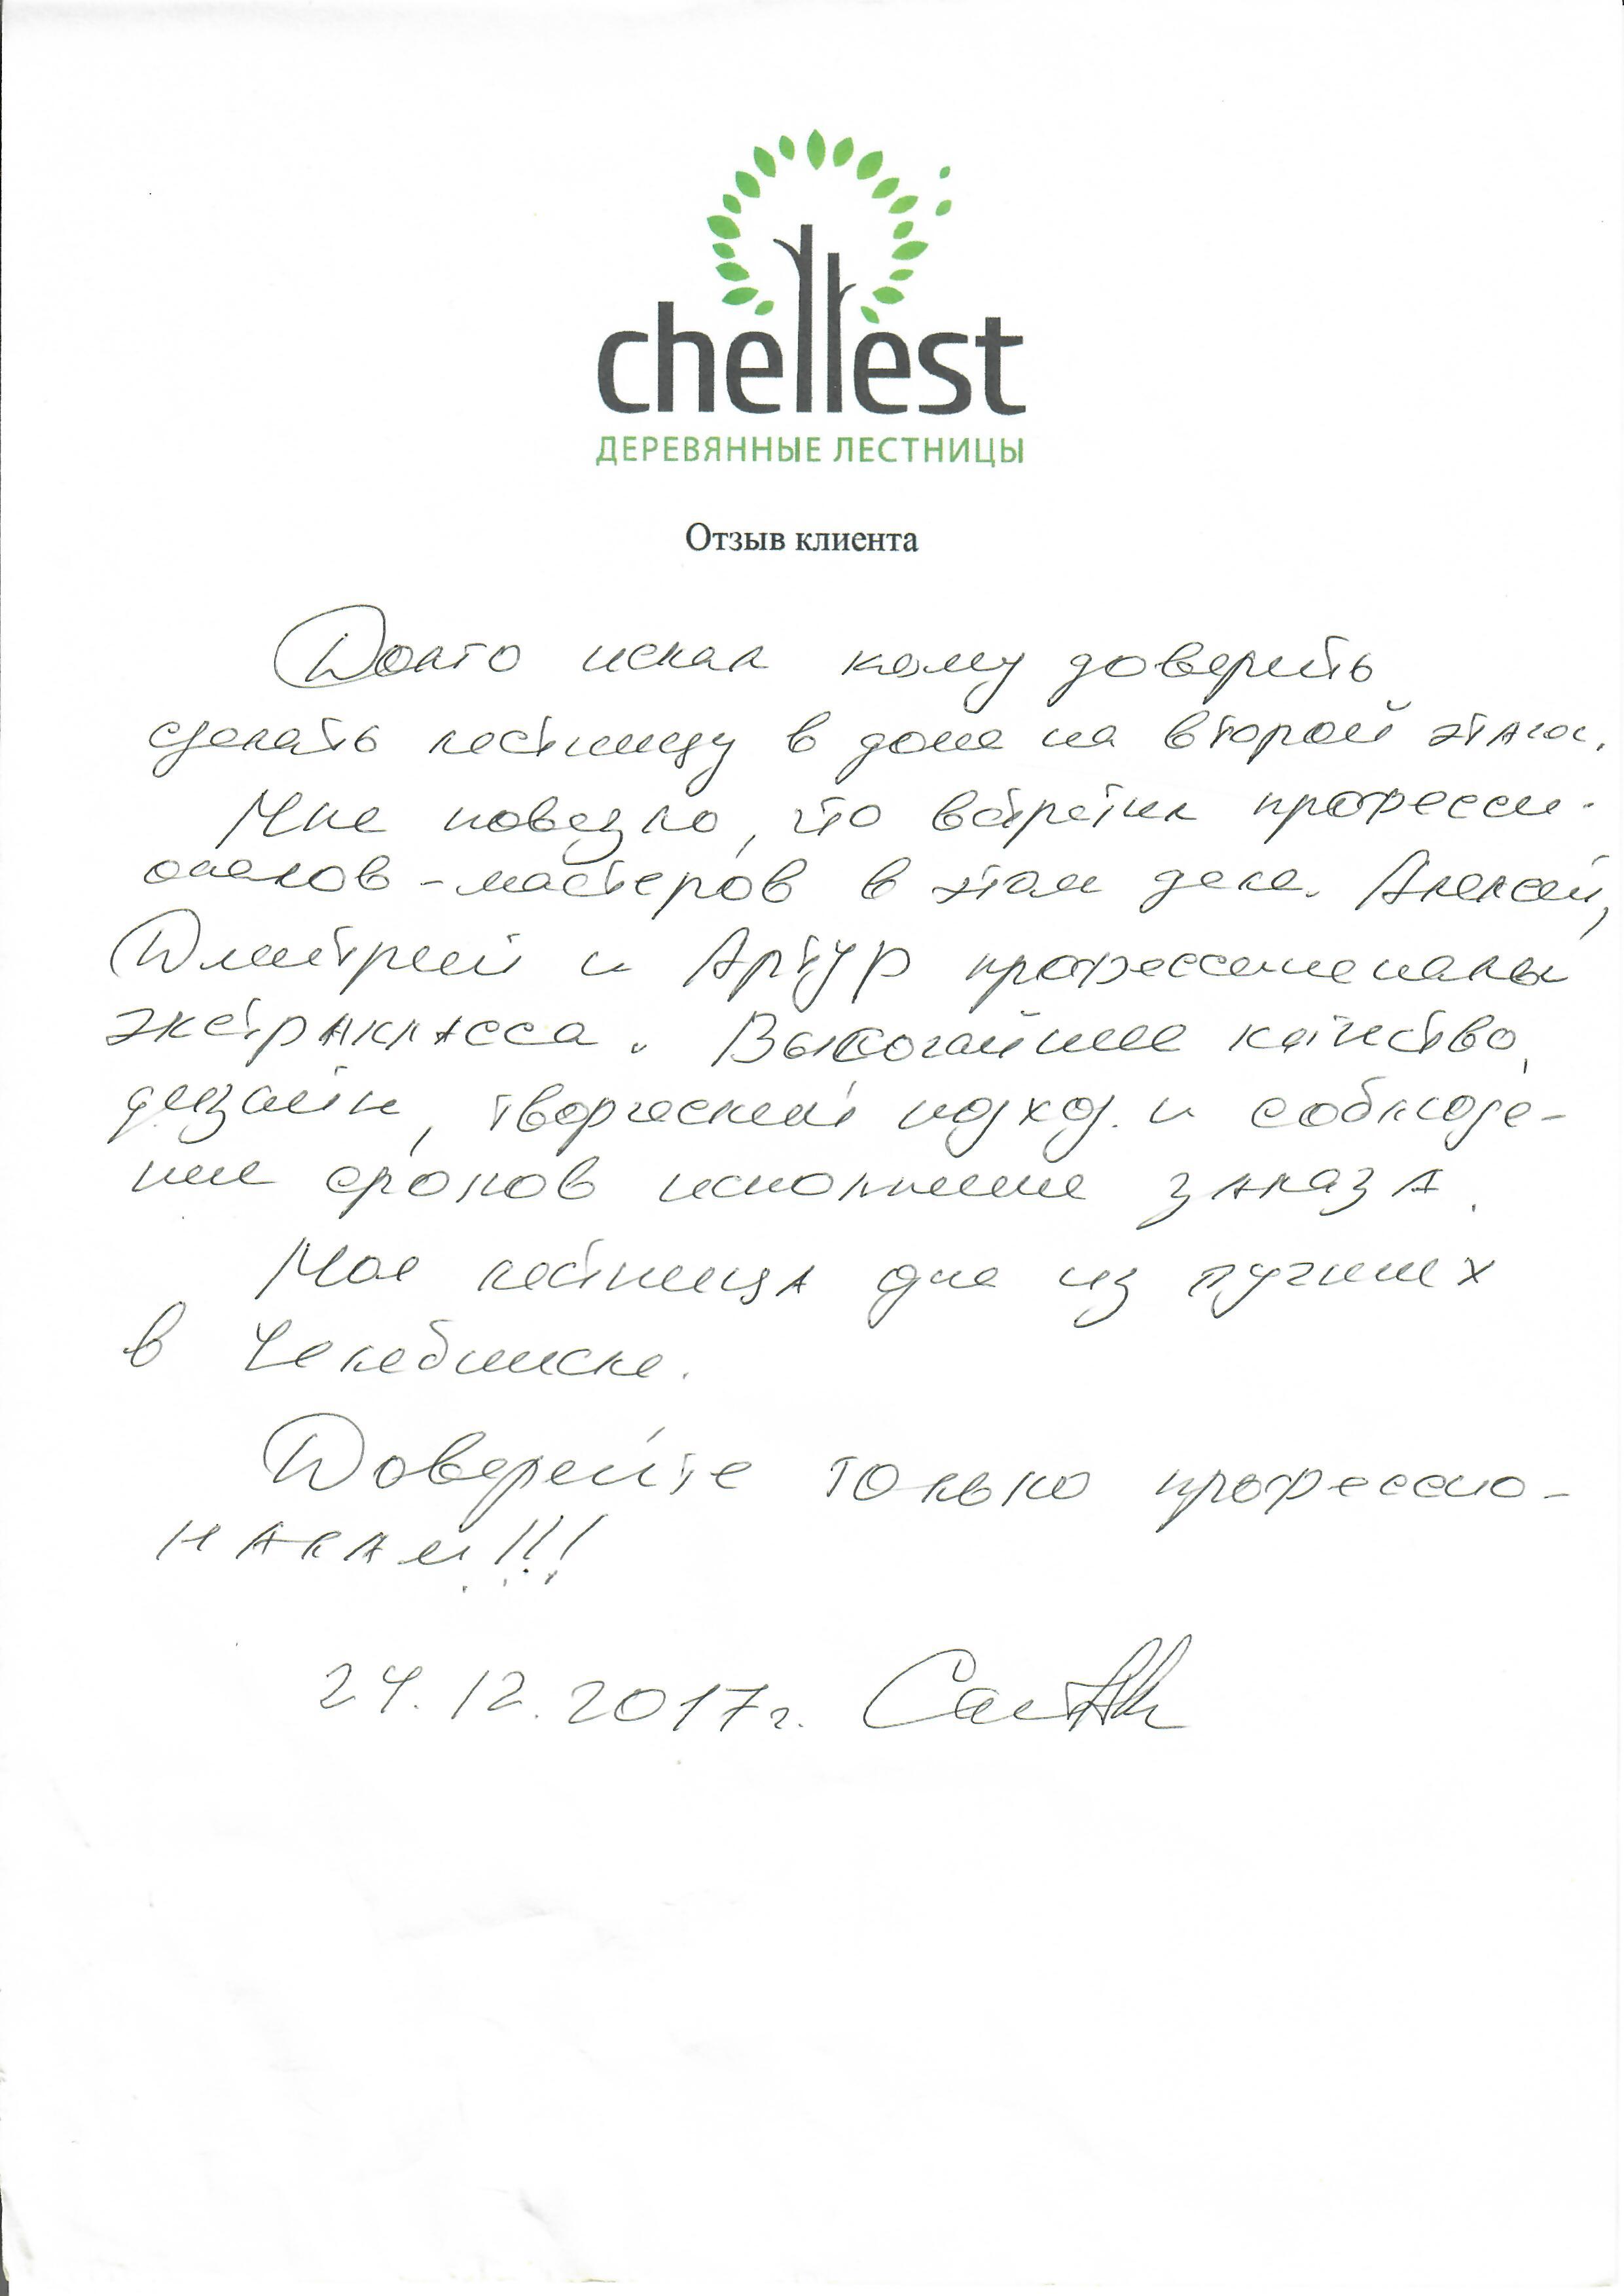 chellest
ДЕРЕВЯННЫЕ ЛЕСТНИЦЫ
Отзыв клиента
Долго искал кому доверить
сделать лестницу в доме на второй этаж.
Мне повезло, что встретил професси-
оналов-мастеров в этом деле. Алексей,
Дмитрий и Артур профессионалы
экстракласса. Высочайшее качество,
дизайн, творческий подход и соблюде-
ние сроков исполнение заказа.
Моя лестница одна из лучших
в Челябинске.
Доверяйте только профессио-
налам!!!
24.12.2017г.